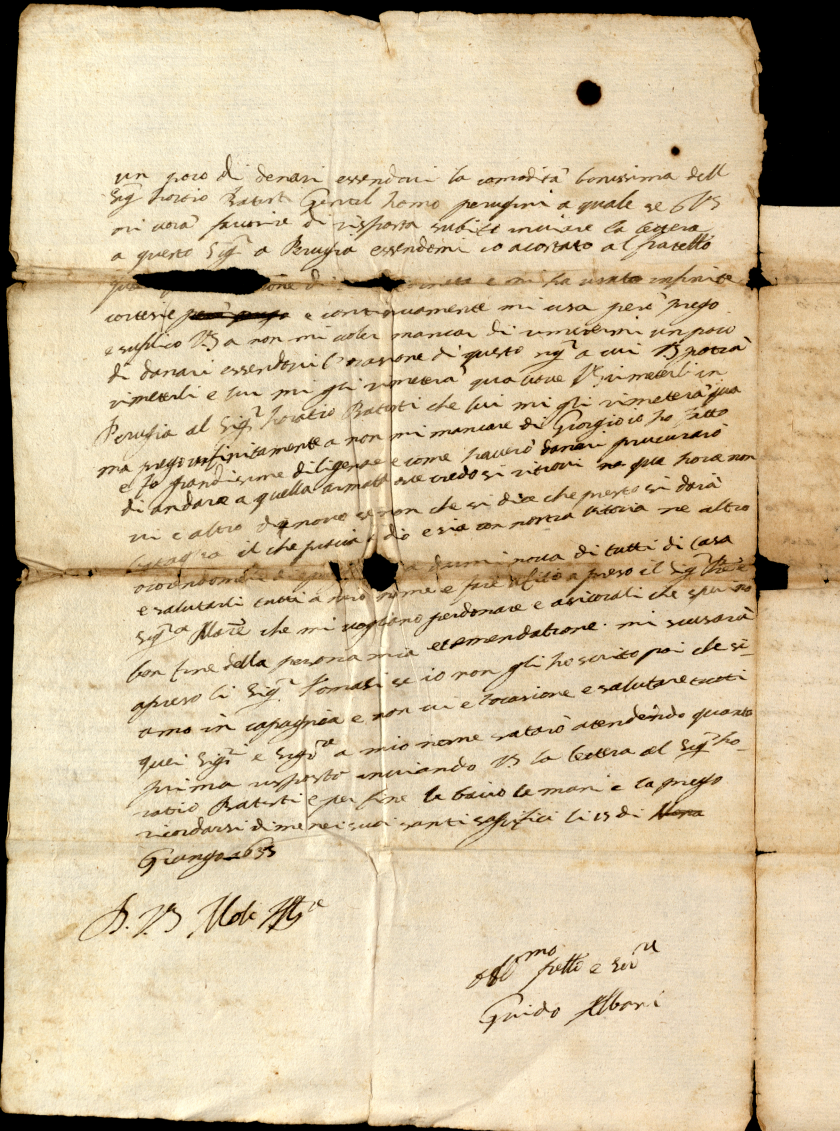 un poco di denari essendovi la comodità bonissima dell
Sig.r horatio Batisti Gentil homo perugini a quale se
mi vorà favorire di risposta subito inviare la lettera
a questo Sig.r a Perugia essendomi io acostato al fratello
e mi ha usato infinite
cortesie e continuamente mi usa però prego
e suplico VS a non mi voler mancar di rimetermi un poco
di danari essendovi l'ocasione di questo sig.r a cui VS potrà
rimetterli e lui mi gli rimeterà qua VS rimetterli in
Perugia al Sig.r horatio Batisti che lui mi gli rimeterà qua
ma prego infinitamente a non mi mancare di Giorgio io ho fatto
e fo grandissime diligense e come haverò danari procurarò
di andare a quella armata ove credo si ritrovi ne qua hora non
vi e altro di novo se non che si dice che presto si darà
il che piacia a dio e sia con nostra vitoria ne altro
darmi nova di tutti di casa
e salutarli tutti a mio nome e fare apreso il Sig.r
Sig.ra Mare che mi vogliano perdonare e asicorali che sperino
bon fine della persona mia et emendatione. mi scusarà
apreso li Sig.ri Tomasi se io non gli ho scrito poi che si-
amo in capagnia e non vi e l'ocasione e salutare tucti
quei Sig.ri e Sig.re a mio nome starò atendendo quanto
prima risposta inviando VS la lettera al Sig.r ho-
ratio Batisti e per fine le bacio le mani e la prego
ricordarsi di me nei suoi santi sacrifici li 15 di
Giungo 1635
D. VS Molt Ill.re
obl.mo fratello e ser.re
Guido Albani